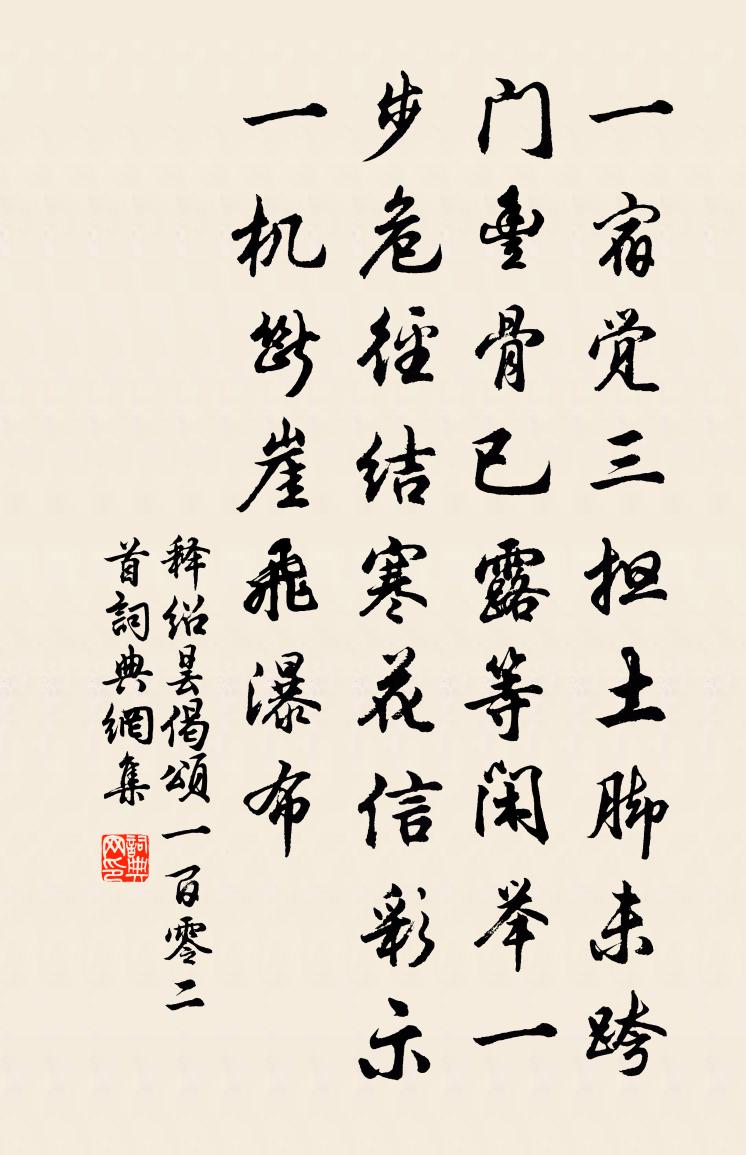 一宿觉三担土脚未跨
门豊骨已露等闲举一
步危径结寒花信彩示
一机断崖飞瀑布
释绍昙偈颂一百零二
首詞典網集
詞典网印